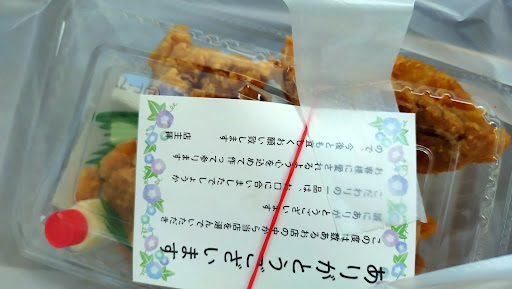 ありがとうございます
この度は数あるお店の中から当店を選んでいただき
誠にありがとうございます
こだわりの一品は、お口に合いましたでしょうか
お客様に愛されるよう心を込めて作って参ります
ので、今後とも宜しくお願い致します
店主拝